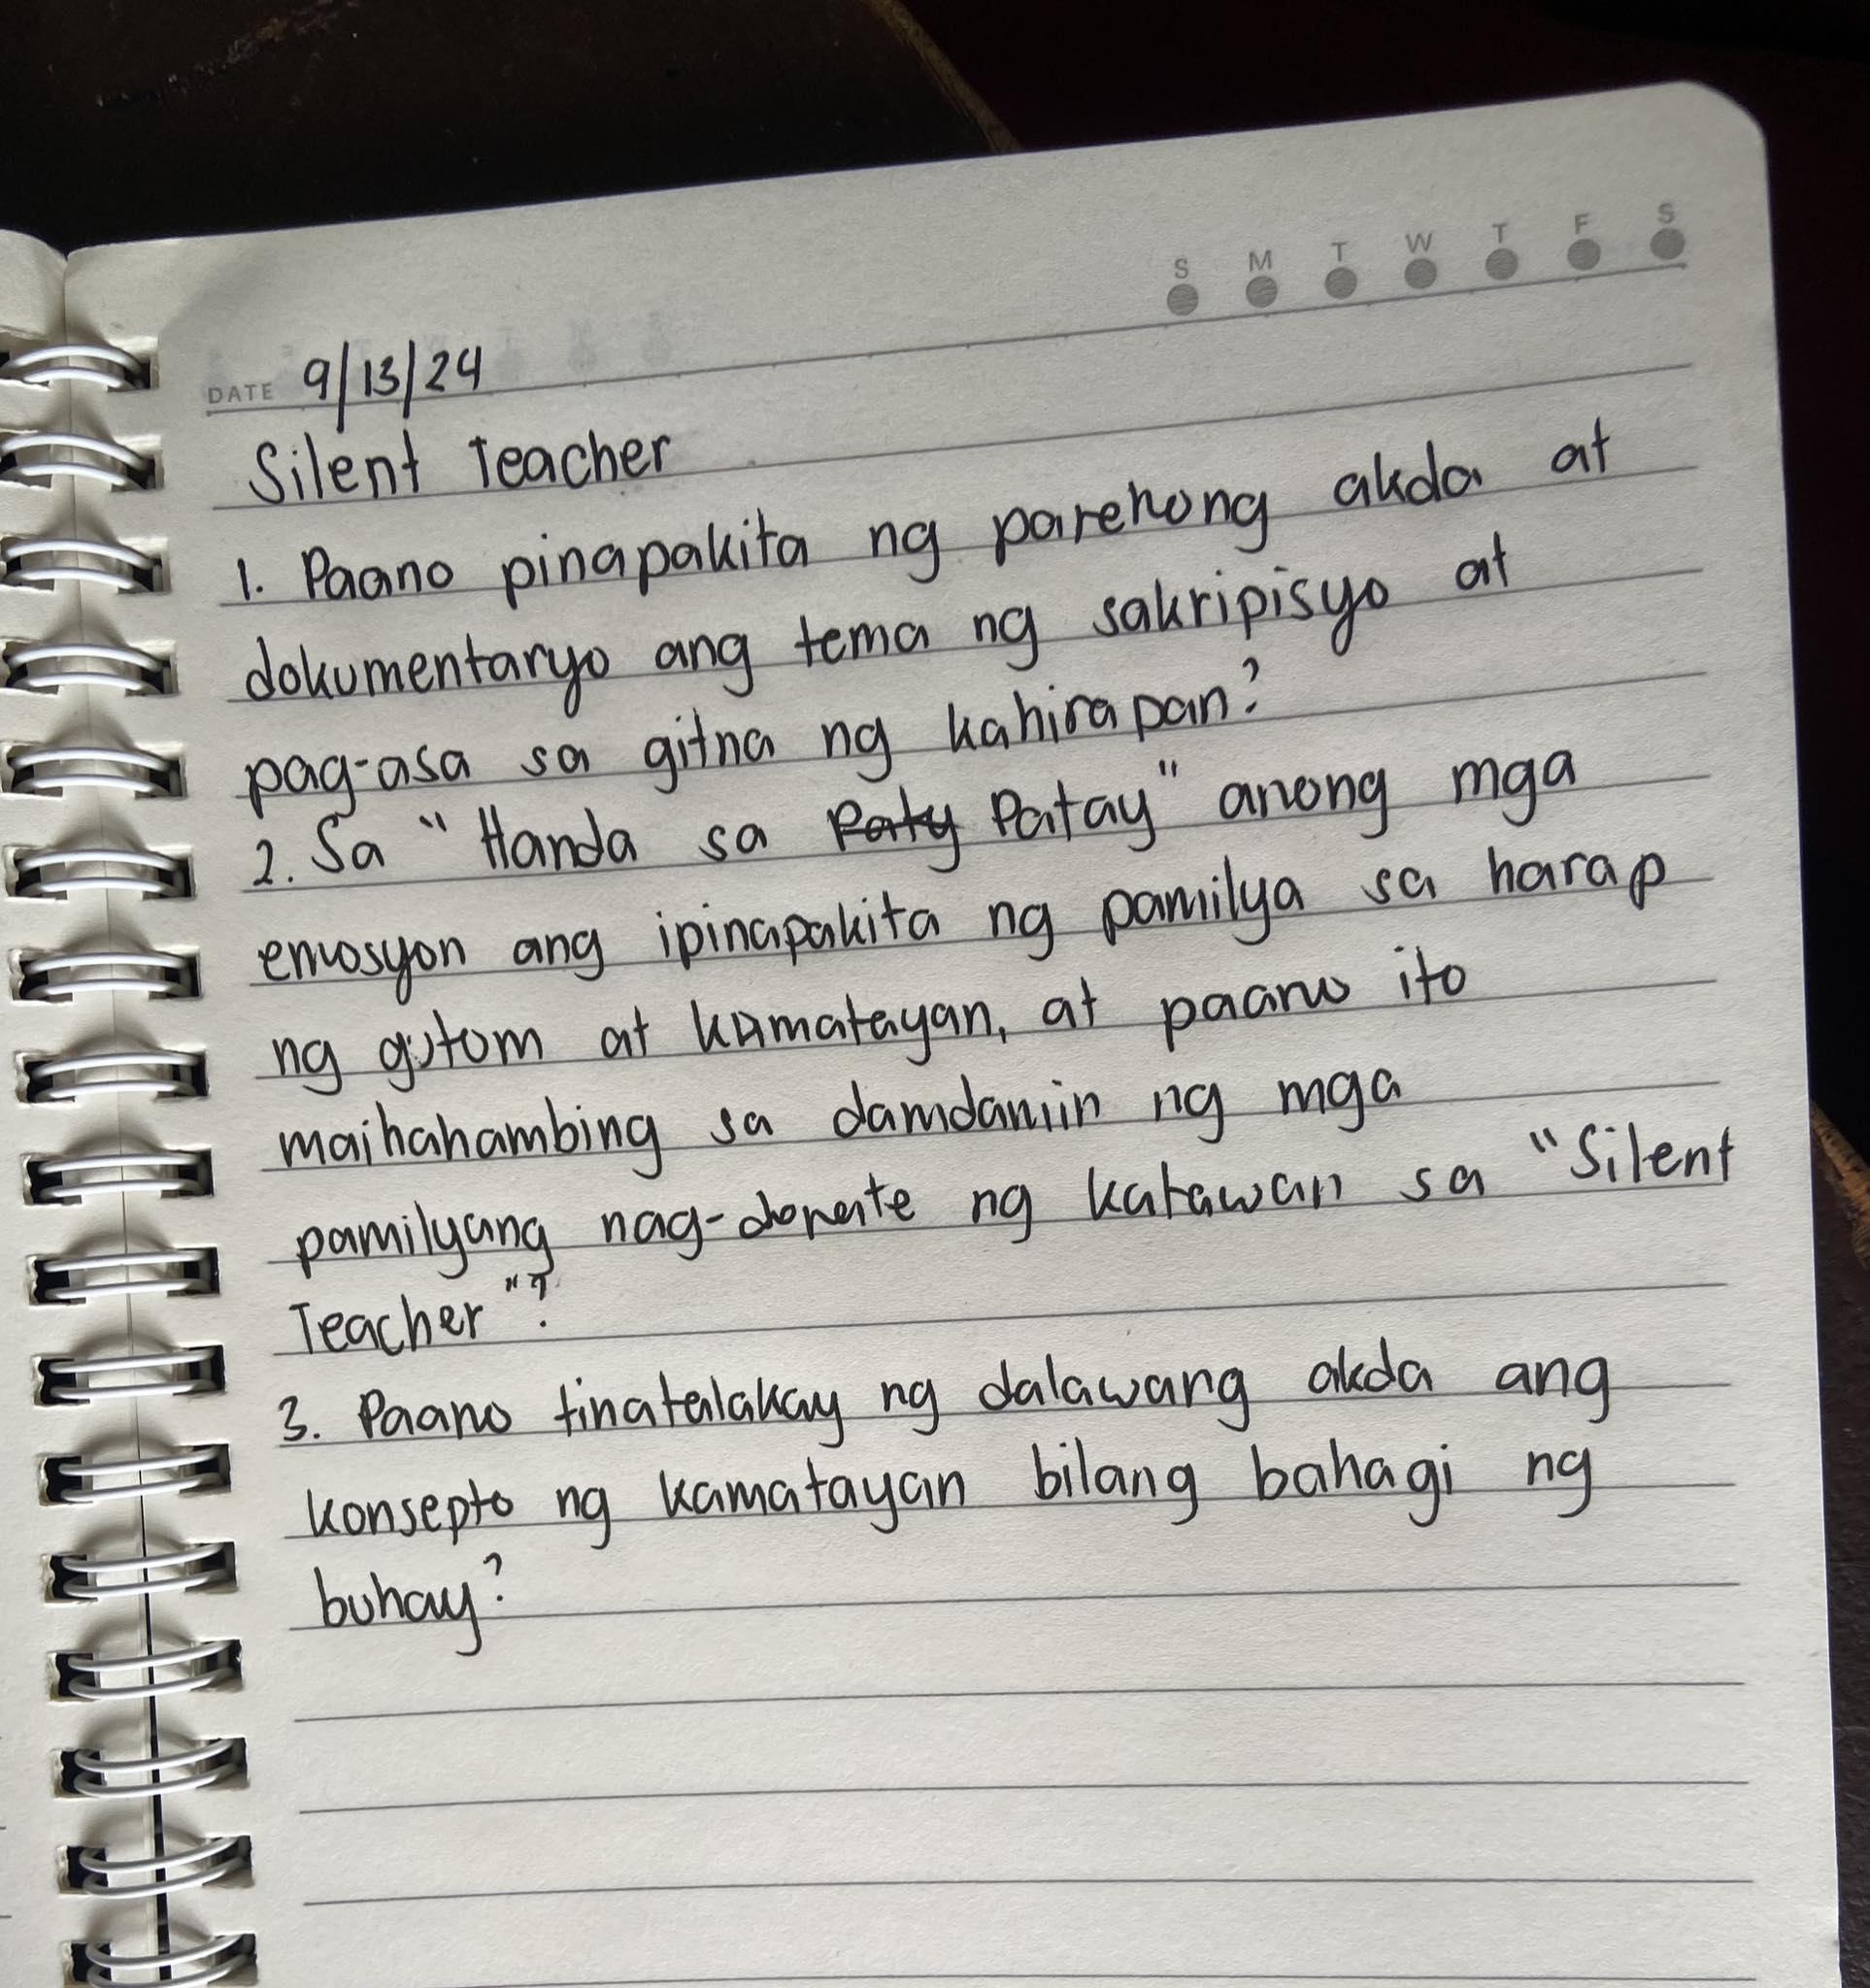 S M T W T F S
DATE 9/13/24
Silent Teacher
1. Paano pinapakita ng parehong akda at
dokumentaryo ang tema ng sakripisyo at
pag-asa sa gitna ng kahirapan?
2. Sa "Handa sa Paty Patay" anong mga
emosyon ang ipinapakita ng pamilya sa harap
ng gutom at kamatayan, at paano ito
maihahambing sa damdamin ng mga
pamilyang nag-donate ng katawan sa "Silent
Teacher"?
3. Paano tinatalakay ng dalawang akda ang
konsepto ng kamatayan bilang bahagi ng
buhay?